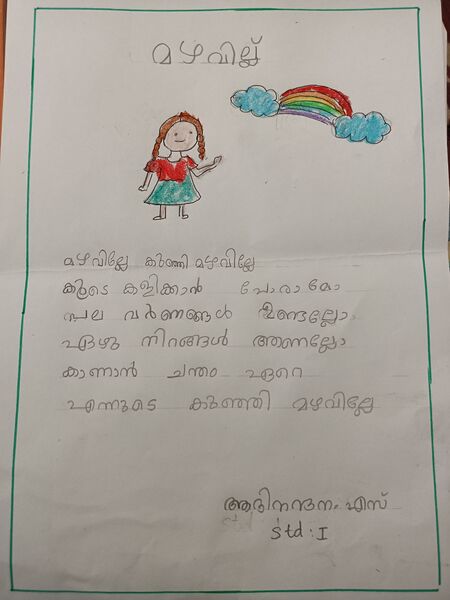 മഴവില്ല്
മഴവില്ലേ കുഞ്ഞി മഴവില്ലേ
കൂടെ കളിക്കാൻ പോരാമോ
പല വർണങ്ങൾ ഉണ്ടല്ലോ
ഏഴു നിറങ്ങൾ ആണല്ലോ
കാണാൻ ചന്തം ഏറെ
എന്നുടെ കുഞ്ഞി മഴവില്ലേ
ആദിനന്ദനം എസ്
Std : I